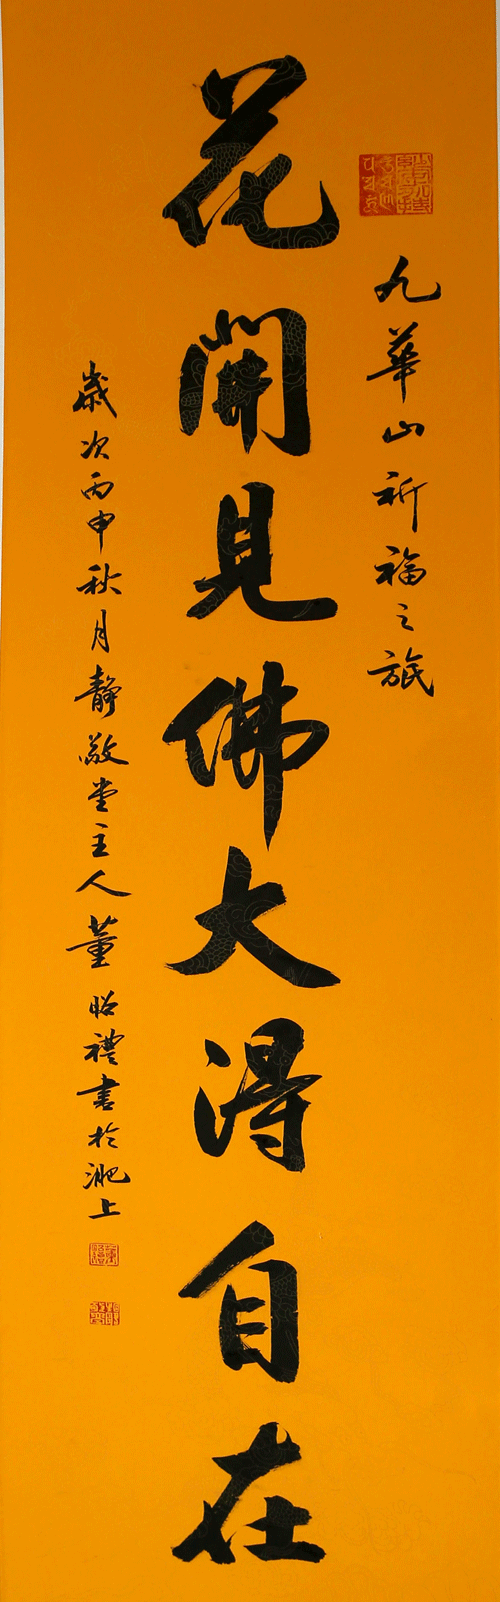 九華山祈福之旅
花開見佛大得自在
歲次丙申秋月靜敬堂主人董昭禮書於淝上